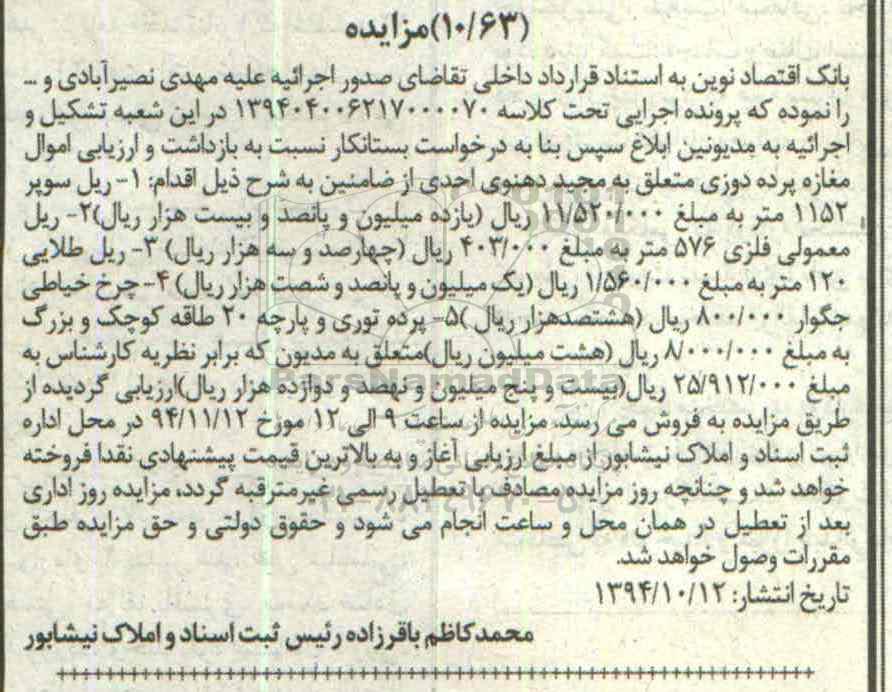 (۱۰/۶۳)مزایده
بانک اقتصاد نوین به استناد قرارداد داخلی تقاضای صدور اجرائیه علیه مهدی نصیرآبادی و ...
را نموده که پرونده اجرایی تحت کلاسه ۱۳۹۴۰۴۰۰۶۲۱۷۰۰۰۰۷۰ در این شعبه تشکیل و
اجرائیه به مدیونین ابلاغ سپس بنا به درخواست بستانکار نسبت به بازداشت و ارزیابی اموال
مغازه پرده دوزی متعلق به مجید دهنوی احدی از ضامنین به شرح ذیل اقدام: ۱- ریل سوپر
۱۱۵۲ متر به مبلغ ۱۱/۵۲۰/۰۰۰ ریال (یازده میلیون و پانصد و بیست هزار ریال)۲- ریل
معمولی فلزی ۵۷۶ متر به مبلغ ۴۰۳/۰۰۰ ریال (چهارصد و سه هزار ریال) ۳- ریل طلایی
۱۲۰ متر به مبلغ ۱/۵۶۰/۰۰۰ ریال (یک میلیون و پانصد و شصت هزار ریال) ۴- چرخ خیاطی
جگوار ۸۰۰/۰۰۰ ریال (هشتصدهزار ریال )۵- پرده توری و پارچه ۲۰ طاقه کوچک و بزرگ
به مبلغ ۸/۰۰۰/۰۰۰ ریال (هشت میلیون ریال)متعلق به مدیون که برابر نظریه کارشناس به
مبلغ ۲۵/۹۱۲/۰۰۰ ریال(بیست و پنج میلیون و نهصد و دوازده هزار ریال)ارزیابی گردیده از
طریق مزایده به فروش می رسد، مزایده از ساعت ۹ الی ۱۲ مورخ ۹۴/۱۱/۱۲ در محل اداره
ثبت اسناد و املاک نیشابور از مبلغ ارزیابی آغاز و به بالاترین قیمت پیشنهادی نقدا فروخته
خواهد شد و چنانچه روز مزایده مصادف با تعطیل رسمی غیرمترقبه گردد، مزایده روز اداری
بعد از تعطیل در همان محل و ساعت انجام می شود و حقوق دولتی و حق مزایده طبق
مقررات وصول خواهد شد.
تاریخ انتشار: ۱۳۹۴/۱۰/۱۲
محمدکاظم باقرزاده رئیس ثبت اسناد و املاک نیشابور
ParsNamadData